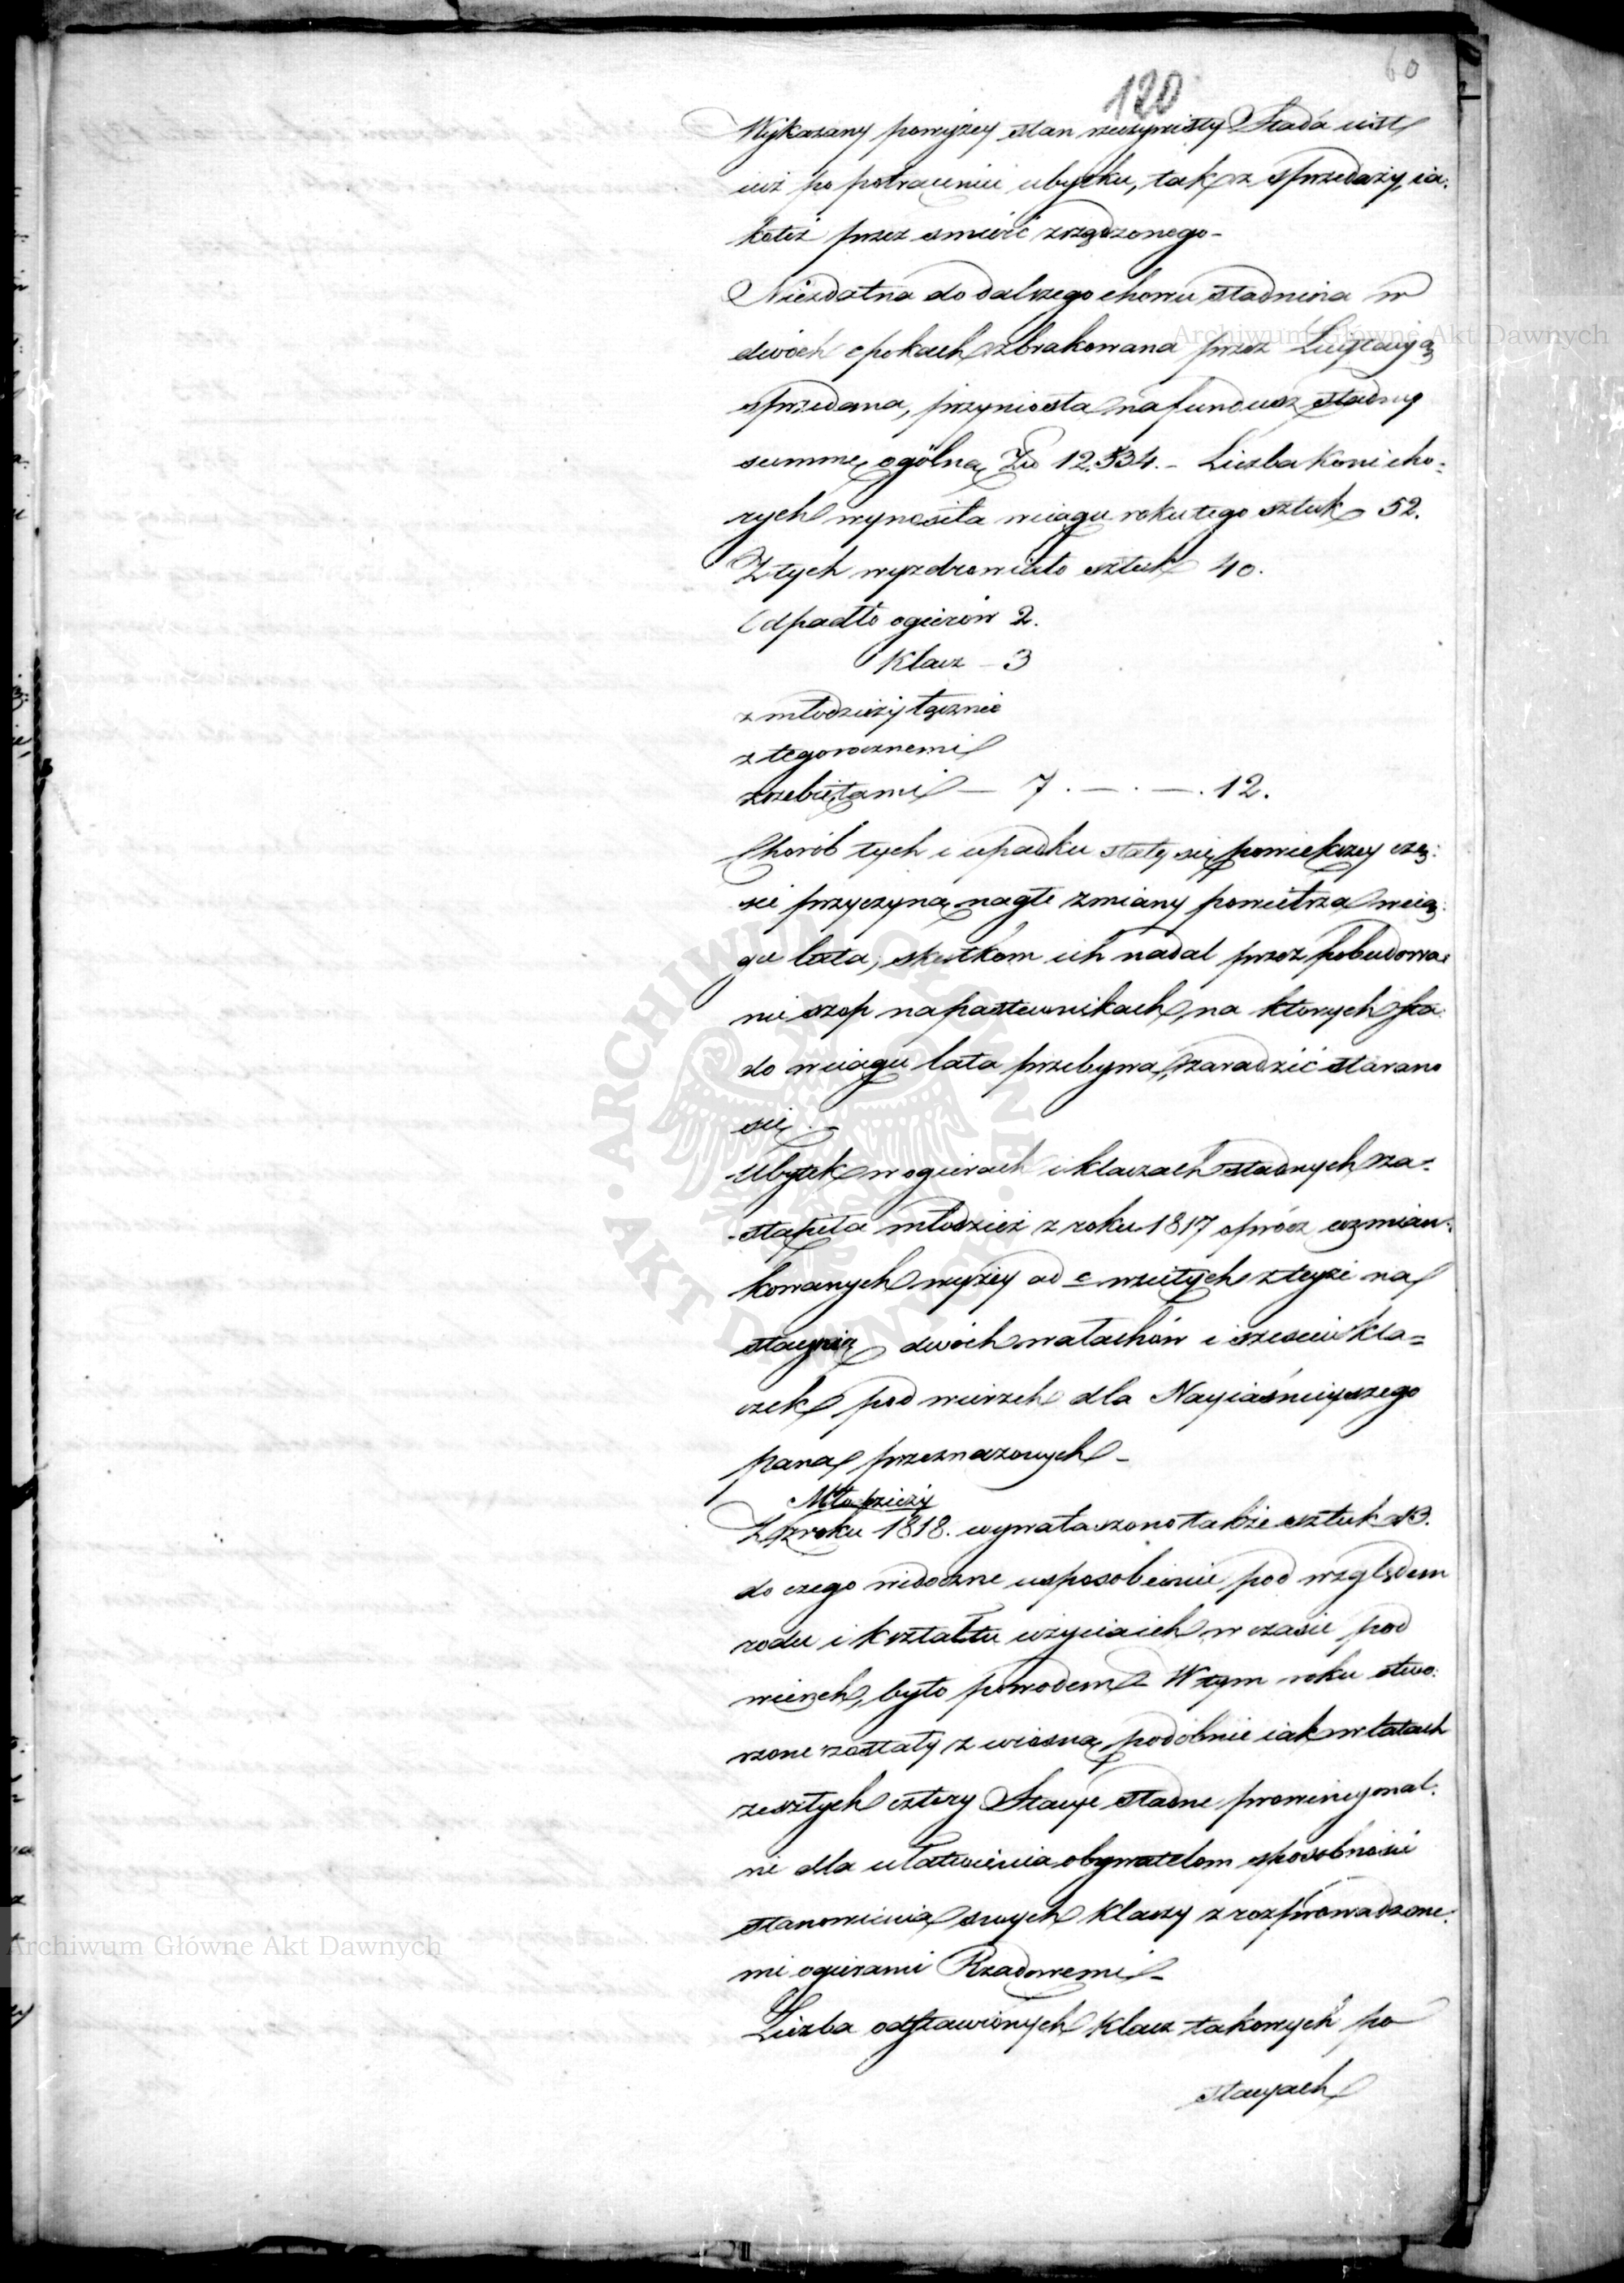 60
120
Wykazany powyżey stan rzeczywisty Stada iest
iuż po potrąceniu ubytku, tak z sprzedaży ia:
koteż przez śmierć zrządzonego-
Niezdatna do dalszego chowu stadnina w
dwóch epokach zbrakowana przez Licytacyą
sprzedana, przyniosła na fundusz stadny
summę ogólną Zł 12,534.- Liczba koni cho:
rych wynosiła wciągu roku tego sztuk 52.
Z tych wyzdrowiało sztuk 40.
Odpadło ogierów 2.
Klacz - 3
z młodzieży łącznie
z tegorocznemi
źrzebiętami — 7. — . — . 12.
Chorób tych i upadku stały się powiększey czę:
ści przyczyną nagłe zmiany powietrza wcią:
gu lata, skutkom ich nadal przez pobudowa:
nie szop na pastewnikach, na ktorych sta
do wciągu lata przebywa, zaradzić starano
się.-
Ubytek w ogierach i klaczach stadnych za:
stąpiła młodzież z roku 1817 oprócz wzmian:
kowanych wyżey ad c wziętych z teyże na
staynię dwóch wałachów i sześciu kla=
czek pod wierzch dla Nayiaśnieyszego
pana przeznaczonych-
Młodzieży
Z roku 1818. wywałaszono także sztuk 13.
do czego widoczne usposobienie pod względem
rodu i kształtu użycia ich w czasie pod
wierzch, było powodem- W tym roku utwo:
rzone zostały z wiosną, podobnie iak w latach
zeszłych cztery Stacye stadne prowincyonal:
ne dla ułatwienia obywatelom sposobności
stanowienia swych klaczy z rozprowadzone:
mi ogierami Rządowemi-
Liczba odstawionych klacz takowych po
stacyach
Archiwum Główne Akt Dawnych
Archiwum Główne Akt Dawnych
ARCHIWUM GŁÓWNE · AKT DAWNYCH ·